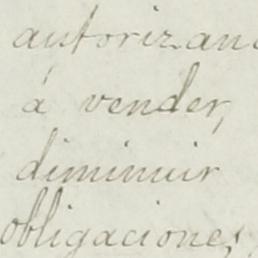 autorizan
á vender,
diminuir
obligaciones